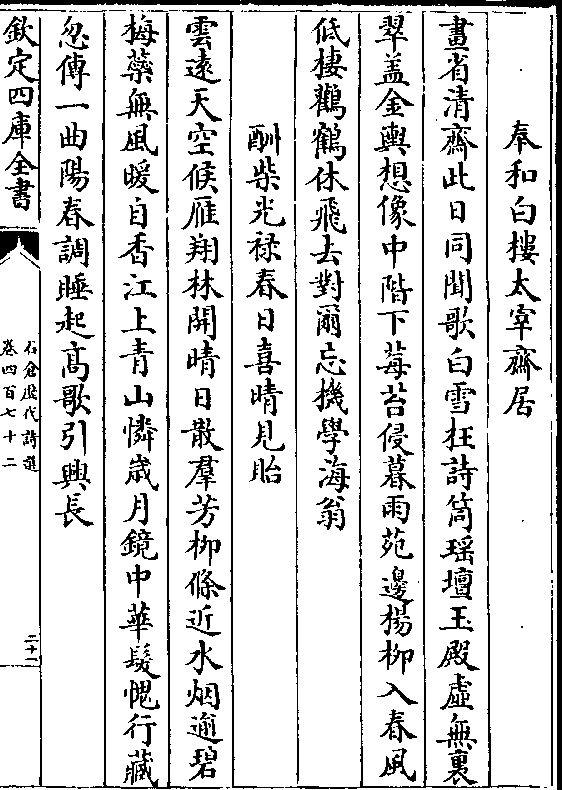 奉和白樓太宰齋居
畫省清齋此日同聞歌白雪枉詩筒瑶壇玉殿虛無裏
翠盖金輿想像中階下莓苔侵暮雨苑邊楊柳入春風
低棲鸛鶴休飛去對爾忘機學海翁
酬柴光禄春日喜晴見貽
雲遠天空候雁翔林開晴日散羣芳柳條近水烟逾碧
梅蘂無風暖自香江上青山憐歳月鏡中華髮愧行藏
忽傳一曲陽春調睡起高歌引興長
欽定四庫全書
石倉歴代詩選
卷四百七十二
二十一